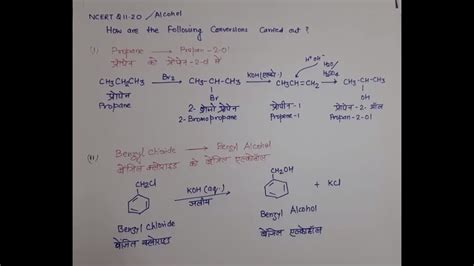 NCERT Q 11.20 / Alcohol
How are the Following Conversions Carried out ?
(i) Propane → Propan-2-ol
प्रोपेन को प्रोपेन-2-ऑल में
CH₃CH₂CH₃ Br₂ CH₃-CH-CH₃ KOH(एल्को.) CH₃CH=CH₂ H⁺OH⁻ H₂O/ H₂SO₄ CH₃-CH-CH₃
Br OH
प्रोपेन 2-ब्रोमो प्रोपेन प्रोपीन-1 प्रोपेन-2-ऑल
Propane 2-Bromopropane Propene-1 Propan-2-ol
(ii) Benzyl Chloride → Benzyl Alcohol
बेंजिल क्लोराइड को बेंजिल एल्कोहॉल
CH₂Cl KOH (aq.) CH₂OH + KCl
जलीय
Benzyl Chloride Benzyl Alcohol
बेंजिल क्लोराइड बेंजिल एल्कोहॉल